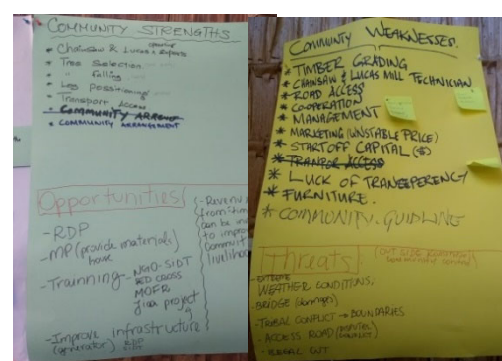 COMMUNITY STRENGTHS
operating
* Chainsaw & Lucas experts
* Tree Selection
* " falling
* Log positioning
* Transport Access
* COMMUNITY
* COMMUNITY ARRANGEMENT
Opportunities
- RDP
- MP (provide materials)
house
- Trainning - NGO-SIDT
RED CROSS
MOFR
jica project
- Improve infrastructure
(generator) RDP
- Revenu
from tim
can be
to impro
Communit
livelihoo
COMMUNITY WEAKNESSES.
* TIMBER GRADING
* CHAINSAW & LUCAS MILL TECHNICIAN
* ROAD ACCESS
* COOPERATION
* MANAGEMENT
* MARKETING (UNSTABLE PRICE)
* START OFF CAPITAL ($)
* ACCESS
* LUCK OF TRANSPERENCY
* FURNITURE.
* COMMUNITY. GUIDLINE
Threats
- EXTREME
WEATHER CONDITIONS,
BRIDGE (damages)
- TRIBAL CONFLICT → BOUNDARIES
- ACCESS ROAD